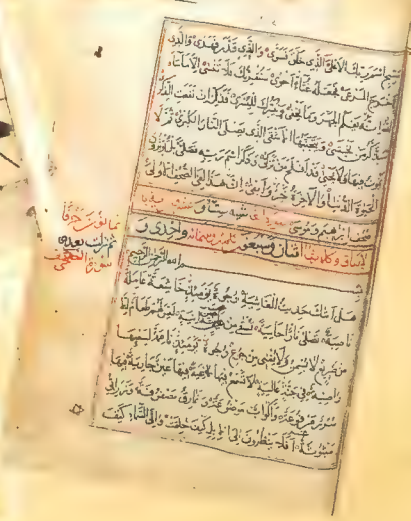 سبح اسم ربك الاعلى الذي خلق فسوى والذي قدر فهدى والذي
اخرج المرعى فجعله غثاء احوى سنقرئك فلا تنسى الا ما شاء
الله انه يعلم الجهر وما يخفى ونيسرك لليسرى فذكر ان نفعت الذكرى
سيذكر من يخشى ويتجنبها الاشقى الذي يصلى النار الكبرى ثم لا
يموت فيها ولا يحيى قد افلح من تزكى وذكر اسم ربه فصلى بل تؤثرون
الحيوة الدنيا والآخرة خير وابقى ان هذا لفي الصحف الاولى
صحف ابرهيم وموسى
اثنان وسبعون واحدى و
بسم الله الرحمن الرحيم
هل اتك حديث الغاشية وجوه يومئذ خاشعة عاملة
ناصبة تصلى نارا حامية تسقى من عين انية ليس لهم طعام الا
من ضريع لا يسمن ولا يغني من جوع وجوه يومئذ ناعمة لسعيها
راضية في جنة عالية لا تسمع فيها لاغية فيها عين جارية فيها
سرر مرفوعة واكواب موضوعة ونمارق مصفوفة وزرابي
مبثوثة افلا ينظرون الى الابل كيف خلقت والى السماء كيف
نزلت بعد
سورة